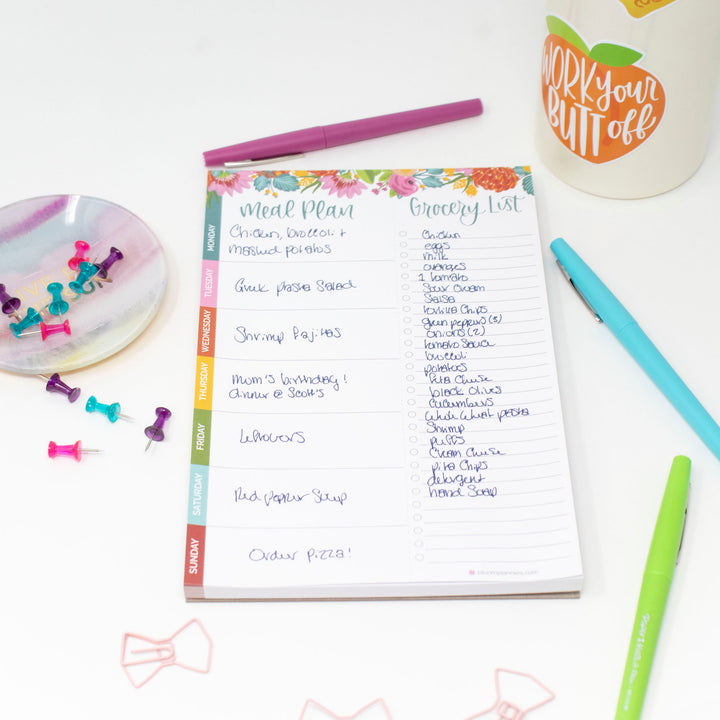 WORK your
BUTT off
Meal Plan
MONDAY
Chicken, broccoli +
mashed potatoes
TUESDAY
Greek pasta Salad
WEDNESDAY
Shrimp Fajitas
THURSDAY
Mom's birthday!
dinner @ Scott's
FRIDAY
Leftovers
SATURDAY
Red Pepper Soup
SUNDAY
Order Pizza!
Grocery List
Chicken
eggs
milk
oranges
1 tomato
Sour Cream
Salsa
tortilla Chips
green peppers (3)
onions (2)
tomato Sauce
broccoli
potatoes
Feta Cheese
black Olives
cucumbers
Whole Wheat pasta
Shrimp
puffs
Cream Cheese
pita Chips
detergent
hand Soap
bloomplanners.com